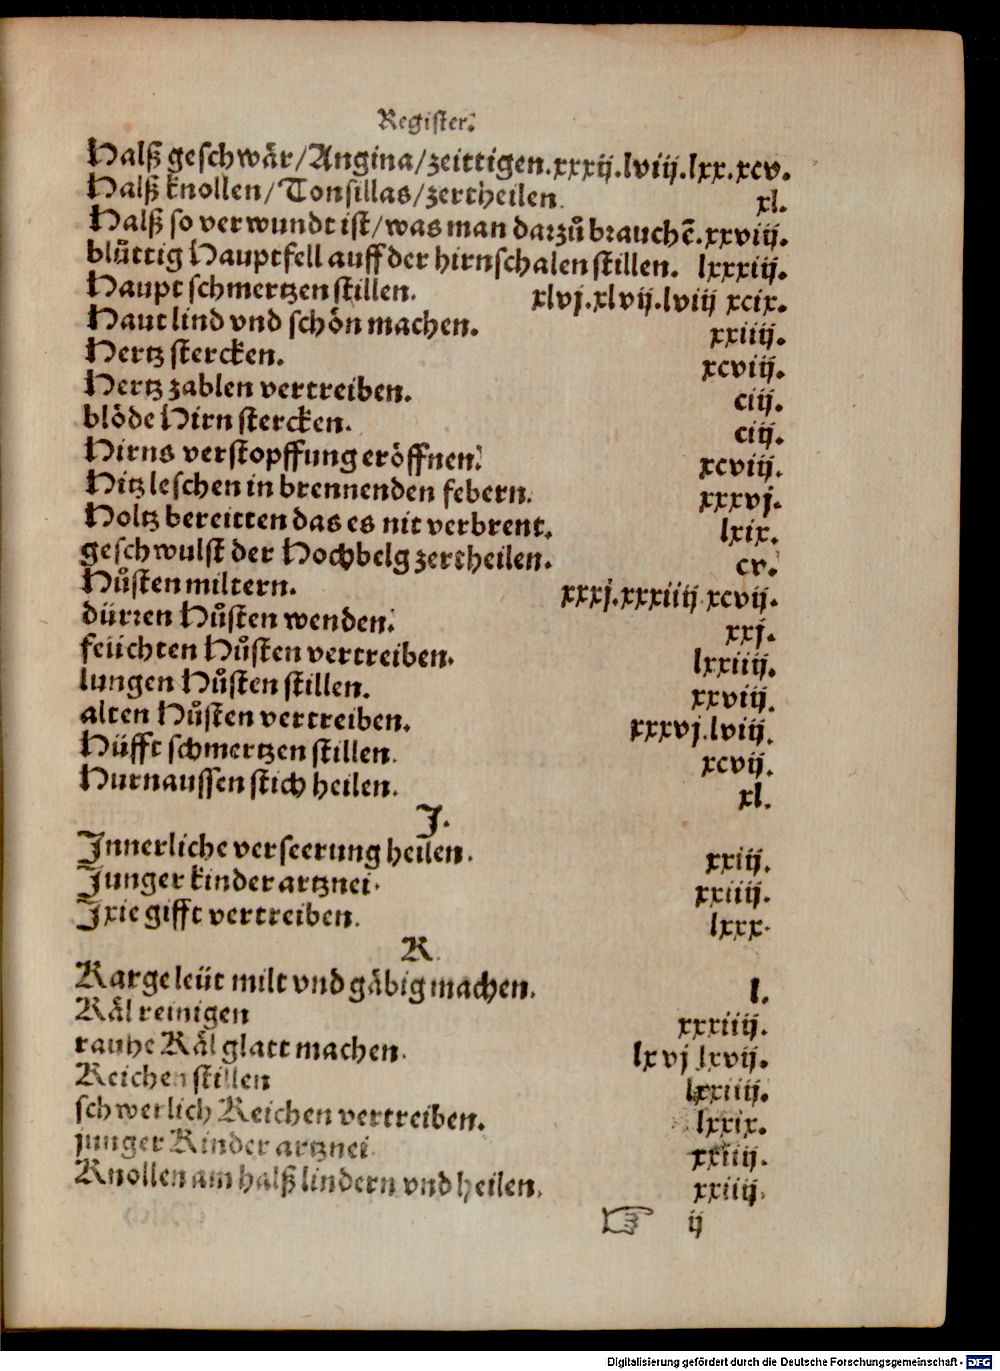 Register.
Halß geschwär/Angina/zeittigen.xxxij.lviij.lxx.xcv.
Halß knollen/Tonsillas/zertheilen. xl.
Halß so verwundt ist/was man darzů brauchẽ.xxviij.
blůttig Hauptfell auff der hirnschalen stillen. lxxxiij.
Haupt schmertzen stillen. xlvj.xlvij.lviij xcix.
Haut lind vnd schön machen. xxiiij.
Hertz stercken. xcviij.
Hertz zablen vertreiben. ciij.
blöde Hirn stercken. ciij.
Hirns verstopffung eröffnen. xcviij.
Hitz leschen in brennenden febern. xxxvj.
Holtz bereitten das es nit verbrent. lxix.
geschwulst der Hochbelg zertheilen. cv.
Hůsten miltern. xxxj.xxxiiij xcvij.
dürren Hůsten wenden. xxj.
feüchten Hůsten vertreiben. lxxiiij.
lungen Hůsten stillen. xxviij.
alten Hůsten vertreiben. xxxvj.lviij.
Hüfft schmertzen stillen. xcvij.
Hurnaussen stich heilen. xl.
J.
Innerliche verseerung heilen. xxiij.
Junger kinder artznei. xxiiij.
Ixie gifft vertreiben. lxxx.
K.
Karge leüt milt vnd gäbig machen. l.
Käl reinigen xxxiiij.
rauhe Käl glatt machen. lxvj lxvij.
Keichen stillen lxxiiij.
schwerlich Keichen vertreiben. lxxix.
junger Kinder artznei. xxiiij.
Knollen am halß lindern vnd heilen. xxiiij.
☞ ij
Digitalisierung gefördert durch die Deutsche Forschungsgemeinschaft - DFG